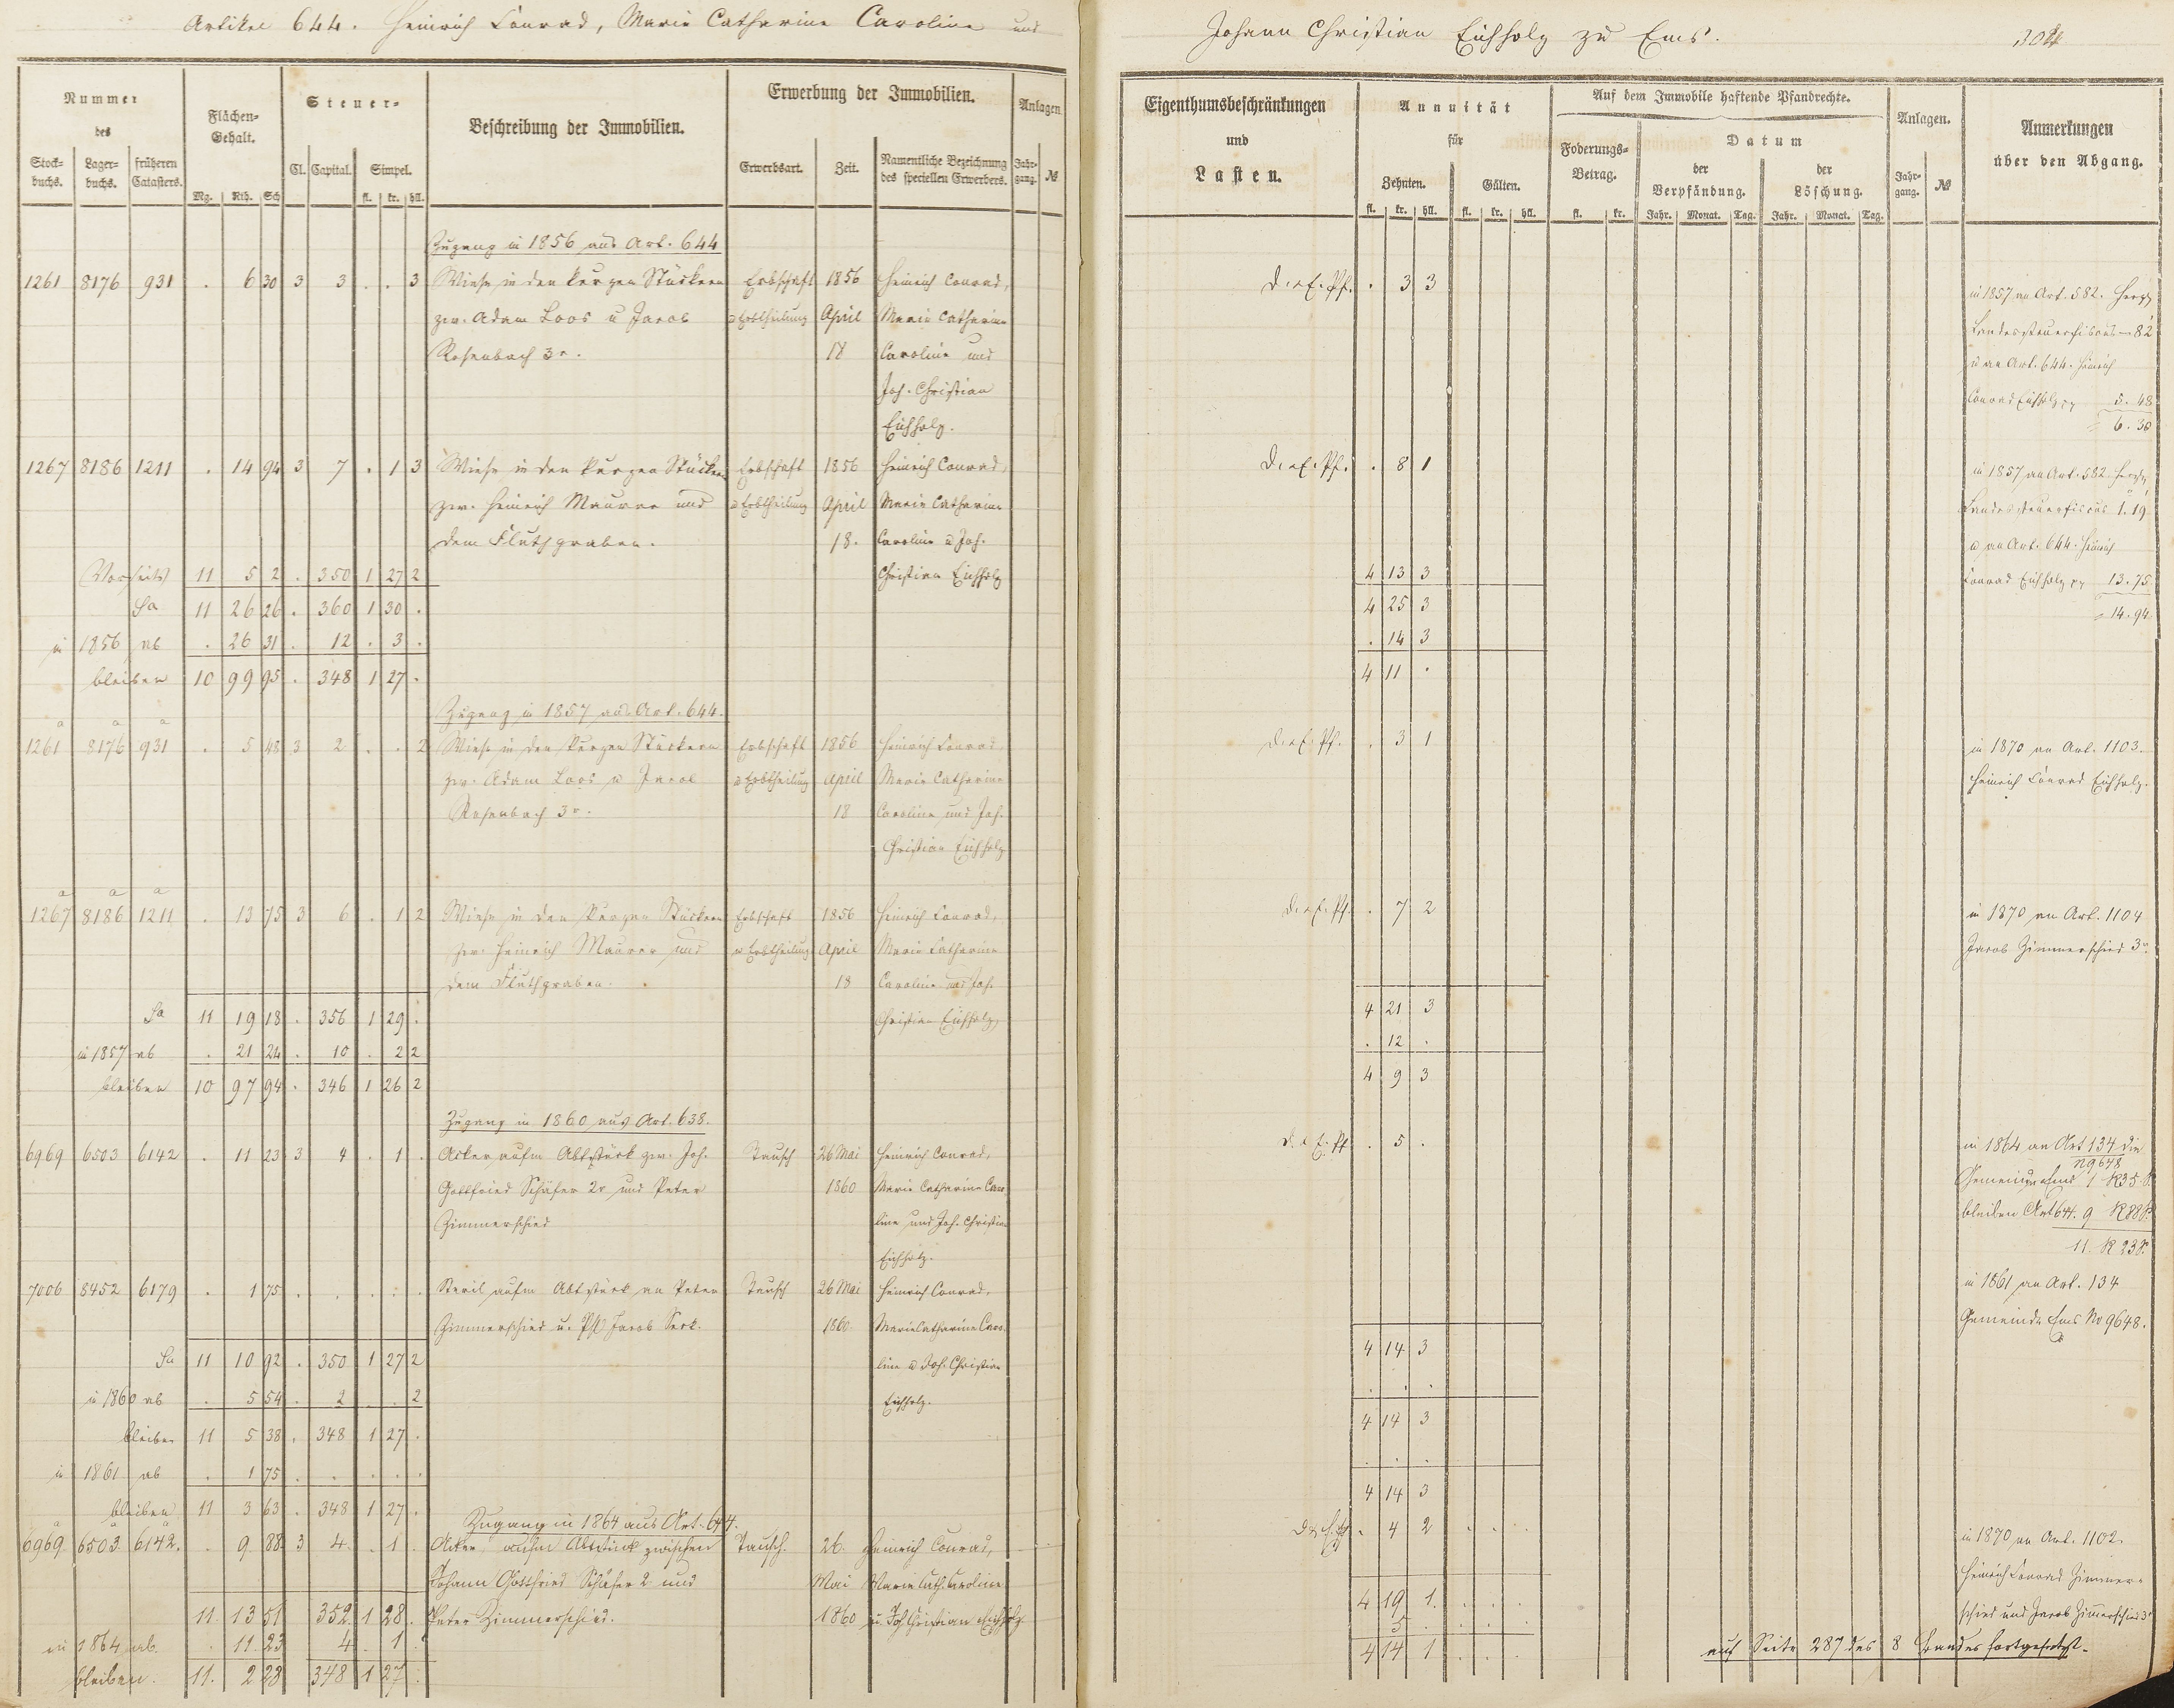 Artikel 644. Heinrich Conrad, Marie Catharine Caroline und
Nummer
des
Stock-
buchs.
Lager-
buchs.
früheren
Catasters.
Flächen-
Gehalt.
Mg. Rth. Sch
Steuer-
Cl. Capital. Simpel.
fl. kr. hll.
Beschreibung der Immobilien.
Erwerbung der Immobilien.
Erwerbsart. Zeit.
Namentliche Bezeichnung
des speciellen Erwerbers.
Anlagen.
Jahr-
gang. №
Zugang in 1856 aus Art. 644
1261 8176 931 . 6 30 3 3 . . 3 Wiese in den kurzen Stückern Erbschaft 1856 Heinrich Conrad,
zw. Adam Loos u Jacob u Erbtheilung April Marie Catharine
Rosenbach 3r. 18 Caroline und
Joh. Christian
Eichholz.
1267 8186 1211 . 14 94 3 7 . 1 3 Wiese in den kurzen Stücken Erbschaft 1856 Heinrich Conrad,
zw. Heinrich Maurer und u Erbtheilung April Marie Catharine
dem Fluthgraben. 18. Caroline u Joh.
Vorseits 11 5 2 . 350 1 27 2 Christian Eichholz
Sa 11 26 26 . 360 1 30 .
in 1856 ab . 26 31 . 12 . 3 .
bleiben 10 99 95 . 348 1 27 .
Zugang in 1857 aus Art. 644.
a a a
1261 8176 931 . 5 48 3 2 . . 2 Wiese in den kurzen Stückern Erbschaft 1856 Heinrich Conrad,
zw. Adam Loos u Jacob u Erbtheilung April Marie Catharine
Rosenbach 3r. 18 Caroline und Joh.
Christian Eichholz
a a a
1267 8186 1211 . 13 75 3 6 . 1 2 Wiese in den kurzen Stückern Erbschaft 1856 Heinrich Conrad,
zw. Heinrich Maurer und u Erbtheilung April Marie Catharine
dem Fluthgraben. 18 Caroline und Joh.
Sa 11 19 18 . 356 1 29 . Christian Eichholz
in 1857 ab . 21 24 . 10 . 2 2
bleiben 10 97 94 . 346 1 26 2
Zugang in 1860 aus Art. 638.
6969 6503 6142 . 11 23 3 4 . 1 . Acker aufm Abtstück zw. Joh. Tausch 26 Mai Heinrich Conrad,
Gottfried Schäfer 2r und Peter 1860 Marie Catharine Caro
Zimmerschied line und Joh. Christian
Eichholz.
7006 8452 6179 . 1 75 . . . . . Steril aufm Abtstück an Peter Tausch 26 Mai Heinrich Conrad,
Zimmerschied u. Jacob 1860 Marie Catharine Caro
Sa 11 10 92 . 350 1 27 2 line u Joh. Christian
in 1860 ab . 5 54 . 2 . . 2 Eichholz.
bleiben 11 5 38 . 348 1 27 .
in 1861 ab . 1 75 . . . . .
bleiben 11 3 63 . 348 1 27 .
Zugang in 1864 aus Art. 644.
a a a
6969. 6503. 6142. . 9 88 3 4 . 1 . Acker aufm Abtstück zwischen Tausch. 26. Heinrich Conrad,
Johann Gottfried Schäfer 2 und Mai Marie Cath. Caroline
11. 13 51 352 1 28 . Peter Zimmerschied. 1860 u. Joh Christian Eichholz
in 1864 ab. . 11 23 4 . 1 .
bleiben. 11. 2 28 348 1 27 .
Johann Christian Eichholz zu Ems.
304
Eigenthumsbeschränkungen
und
Lasten.
Annuität
für
Zehnten. Gülten.
fl. kr. hll. fl. kr. hll.
Auf dem Immobile haftende Pfandrechte.
Foderungs-
Betrag.
fl. kr.
Datum
der
Verpfändung.
Jahr. Monat. Tag.
der
Löschung.
Jahr. Monat. Tag.
Anlagen.
Jahr-
gang. №
Anmerkungen
über den Abgang.
. 3 3
in 1857 an Art. 582. Herzgl
Landessteuerfiscus — 82
u an Art. 644. Heinrich
Conrad Eichholz 5. 48
6. 30
. 8 1
in 1857 an Art. 582. Herzgl
Landessteuerfiscus 1. 19
u an Art. 644. Heinrich
Conrad Eichholz 13. 75
14. 94
4 13 3
4 25 3
. 14 3
4 11 .
. 3 1
in 1870 an Art. 1103.
Heinrich Conrad Eichholz.
. 7 2
in 1870 an Art. 1104
Jacob Zimmerschied 3r.
4 21 3
. 12 .
4 9 3
. 5 .
in 1864 an Art 134 die
N 9648
Gemeinde Ems 1 R 35 S.
bleiben Art 644. 9 R 88 S.
11. R 23 S.
in 1861 an Art. 134
Gemeinde Ems No 9648.
4 14 3
. . .
4 14 3
. . .
4 14 3
. 4 2
in 1870 an Art. 1102.
Heinrich Conrad Zimmer-
schied und Jacob Zimmerschied 3r
4 19 1.
5
4 14 1
auf Seite 287 des 8 Bandes fortgesetzt.